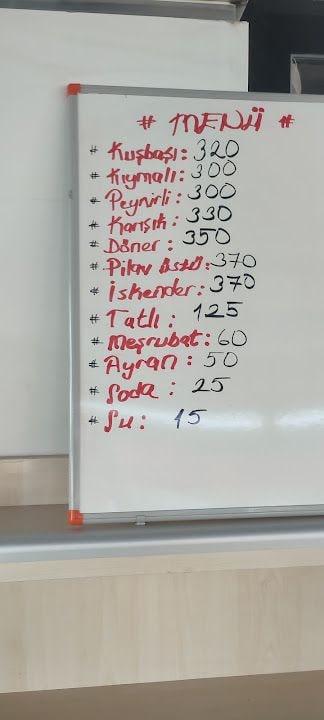 # MENÜ #
* Kuşbaşı: 320
* Kıymalı: 300
* Peynirli: 300
* Karışık: 330
* Döner: 350
* Pilav Üstü: 370
* İskender: 370
* Tatlı: 125
* Meşrubat: 60
* Ayran: 50
* Soda: 25
* Su: 15